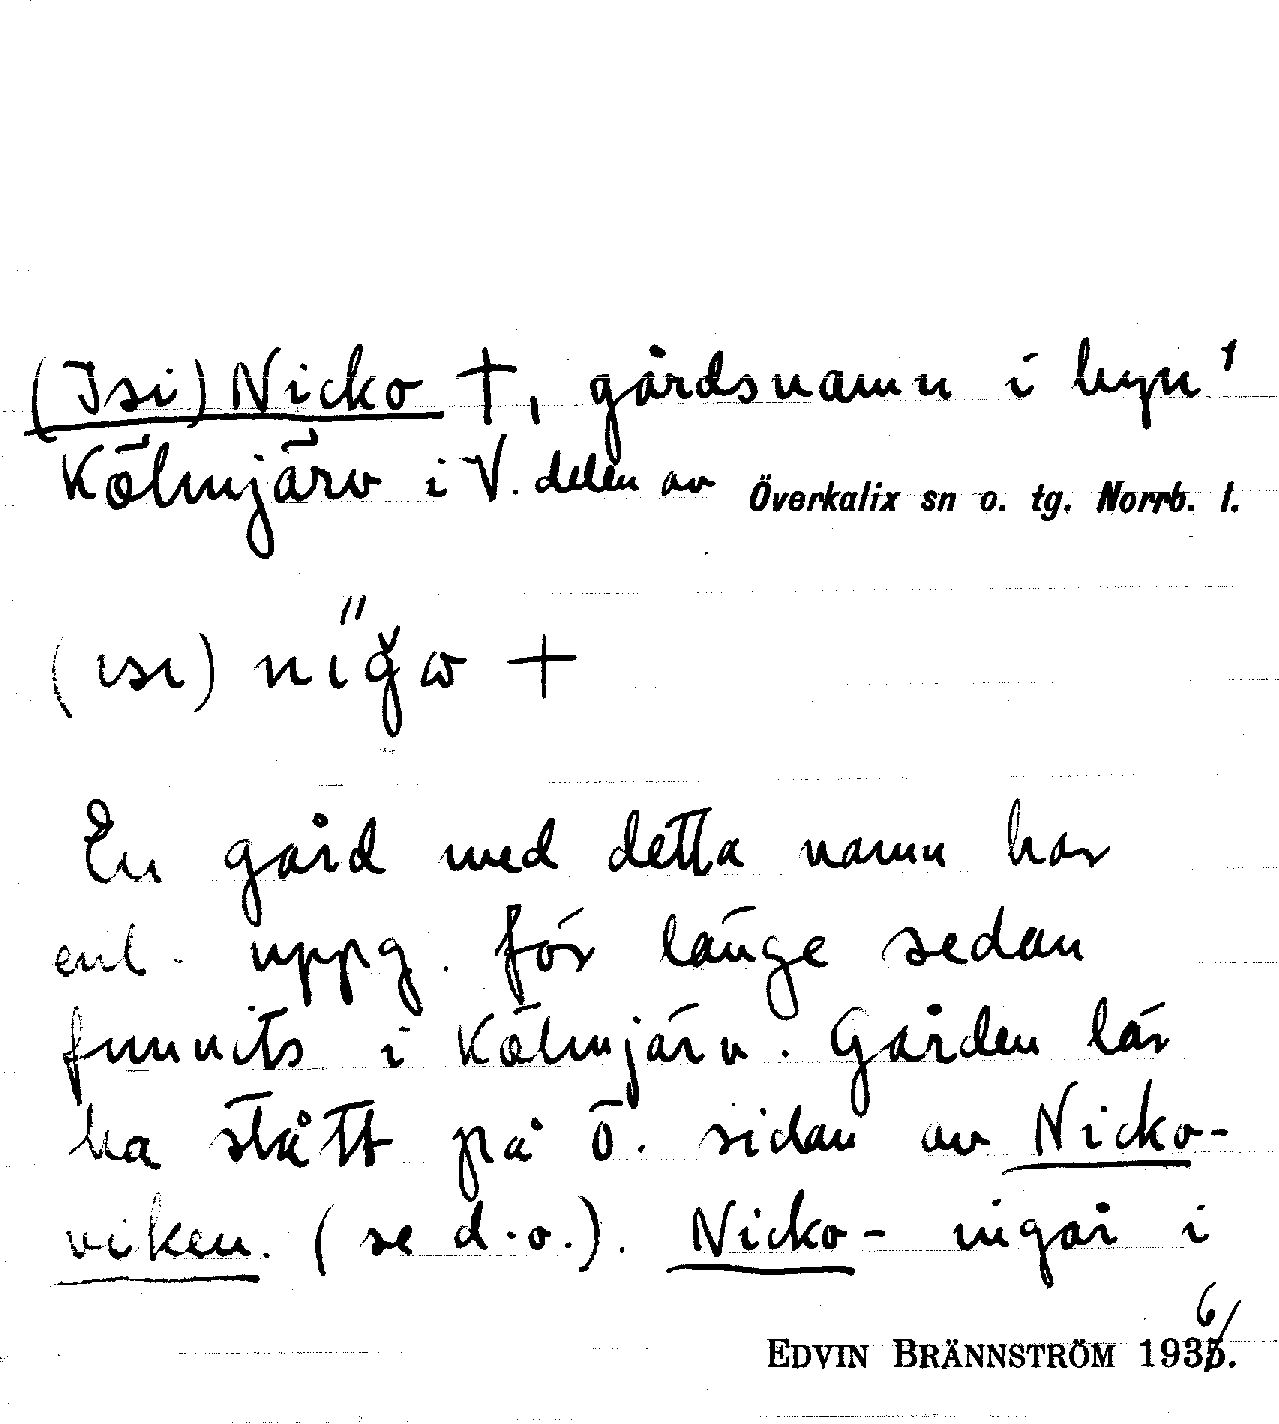 (Isi) Nicko †, gårdsnamn i byn 1
Kölmjärv i V. delen av Överkalix sn o. tg. Norrb. l.
(ısı) nıǧω +
En gård med detta namn har
enl. uppg. för länge sedan
funnits i Kölmjärv. Gården lär
ha stått på ö. sidan av Nicko-
viken. (se d.o.). Nicko- ingår i
EDVIN BRÄNNSTRÖM 1936.